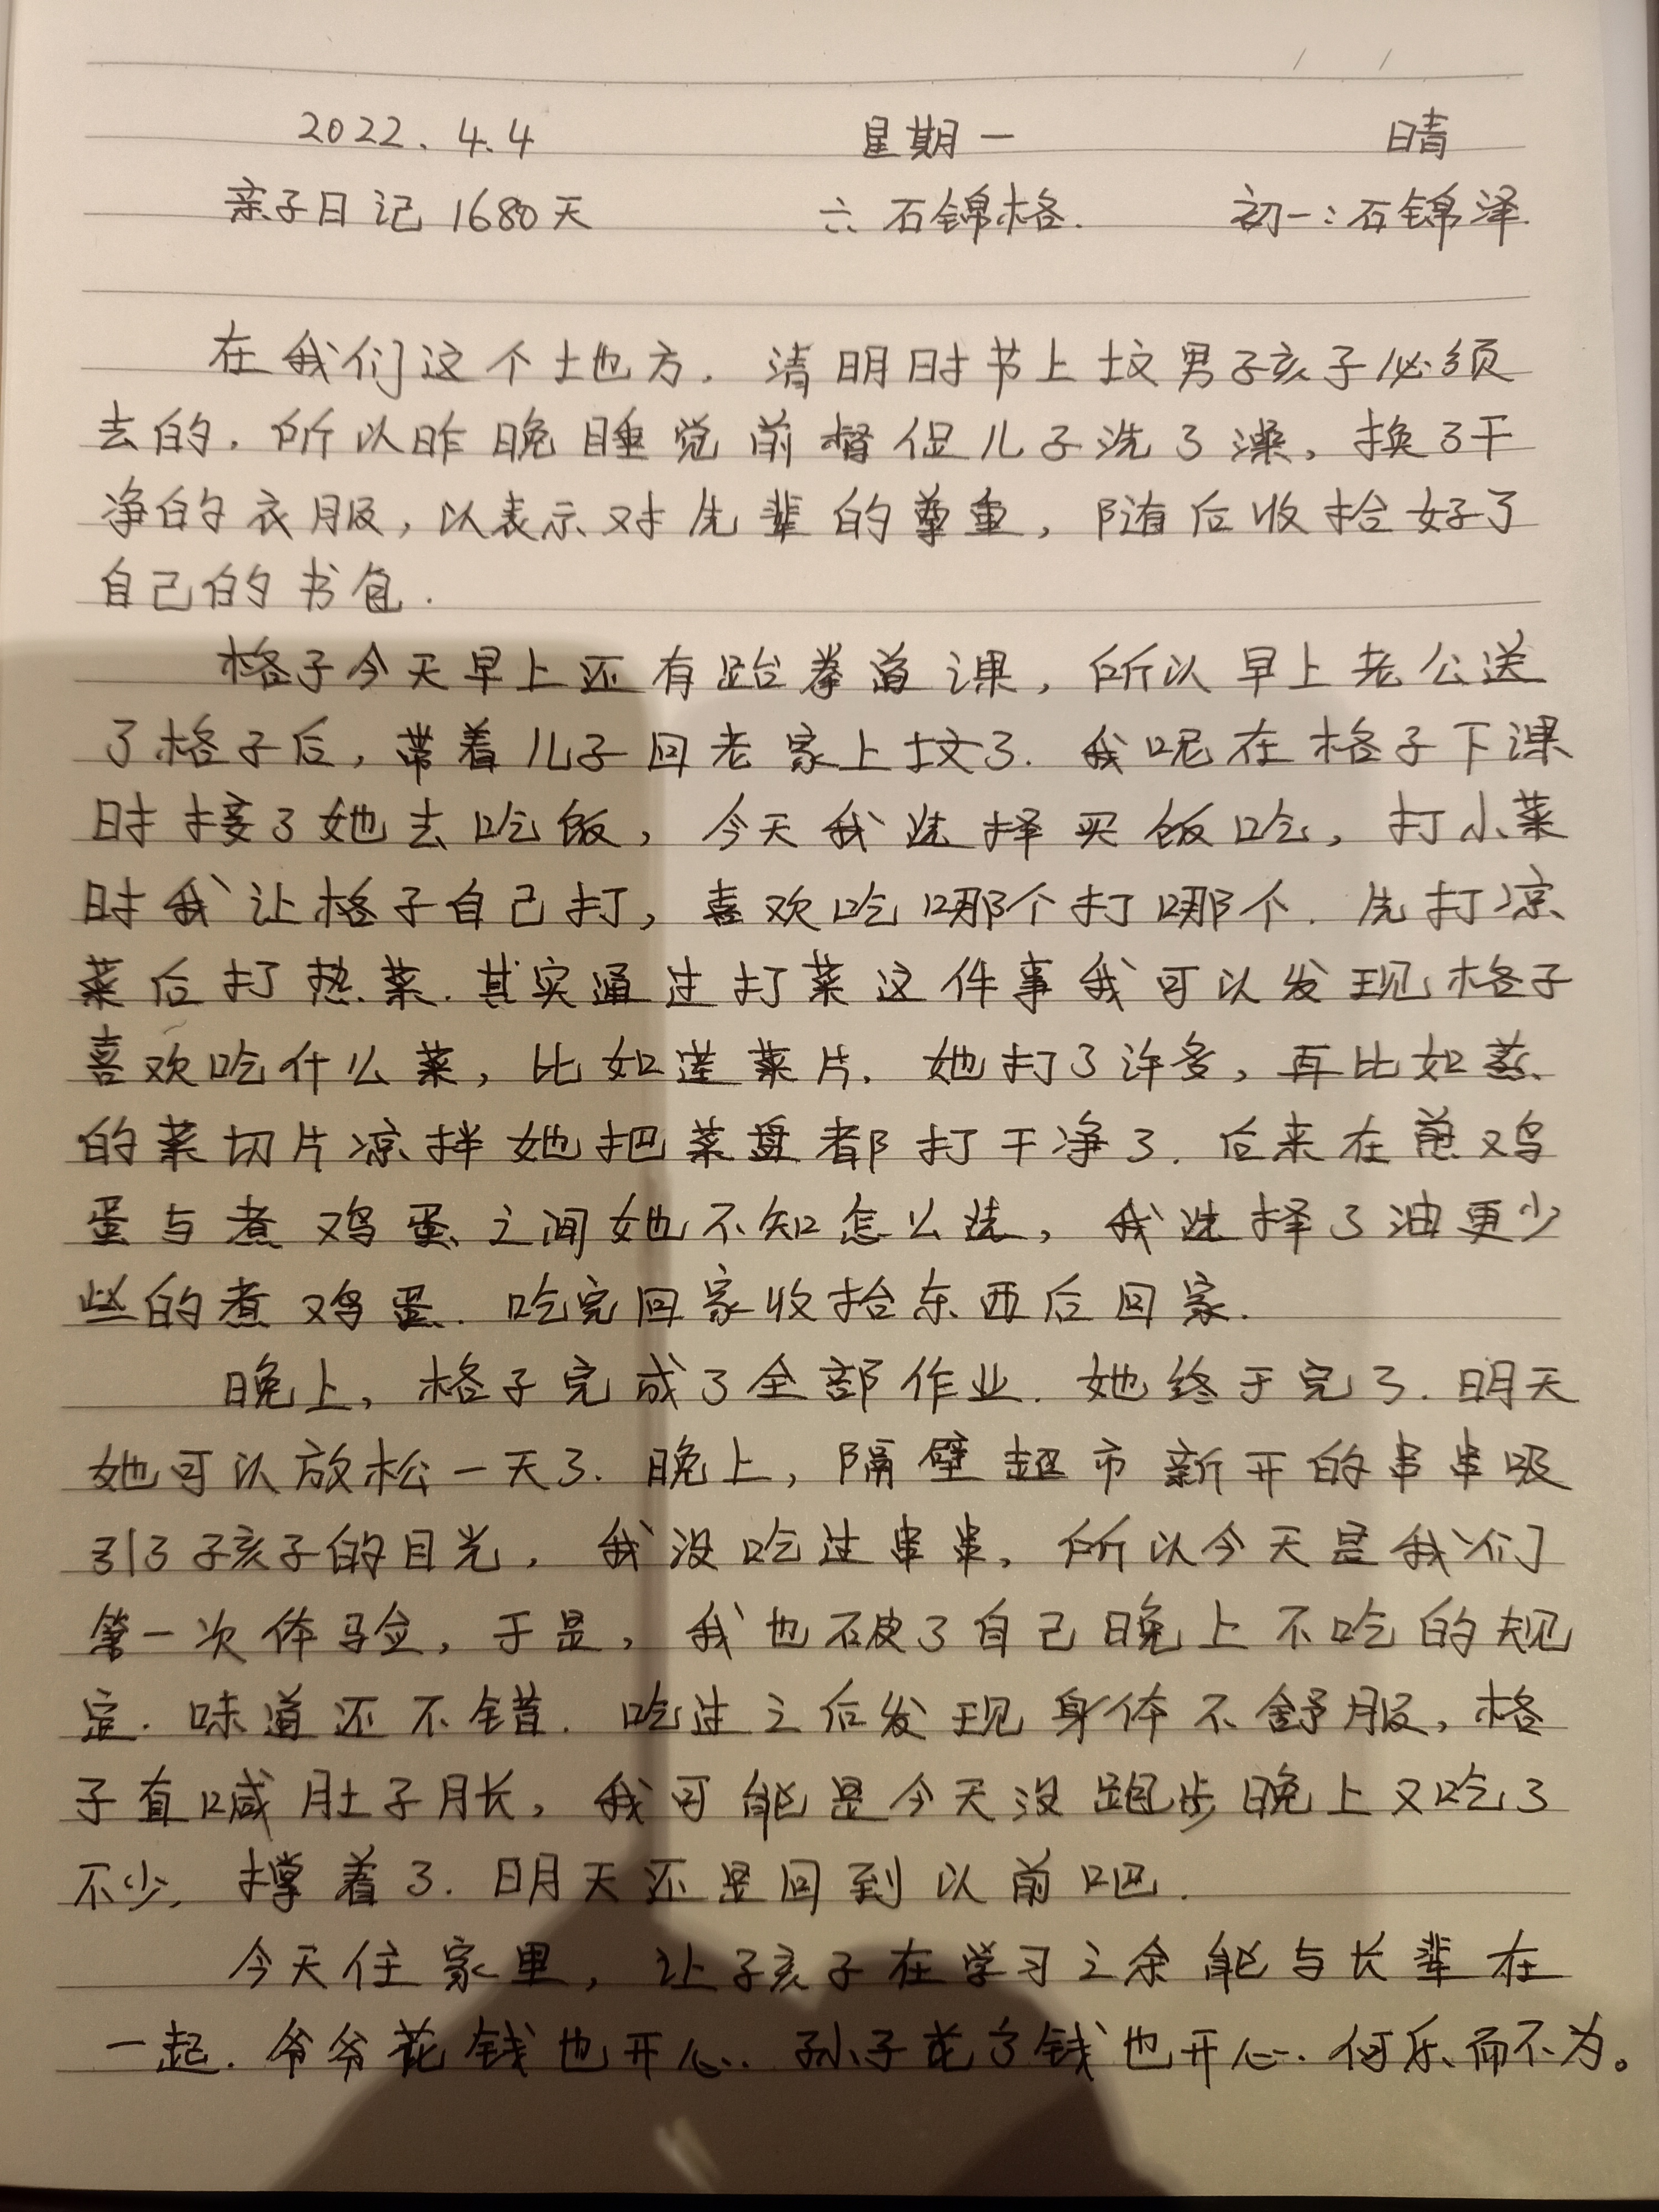 2022.4.4 星期一 晴
亲子日记1680天 六:石锦格. 初一:石锦泽.
在我们这个地方.清明时节上坟男孩子必须
去的.所以昨晚睡觉前督促儿子洗了澡,换了干
净的衣服,以表示对先辈的尊重,随后收拾好了
自己的书包.
格子今天早上还有跆拳道课,所以早上老公送
了格子后,带着儿子回老家上坟了.我呢在格子下课
时接了她去吃饭,今天我选择买饭吃,打小菜
时我让格子自己打,喜欢吃哪个打哪个.先打凉
菜后打热菜.其实通过打菜这件事我可以发现格子
喜欢吃什么菜,比如莲菜片.她打了许多,再比如蒸
的菜切片凉拌她把菜盘都打干净了.后来在煎鸡
蛋与煮鸡蛋之间她不知怎么选,我选择了油更少
些的煮鸡蛋.吃完回家收拾东西后回家.
晚上,格子完成了全部作业.她终于完了.明天
她可以放松一天了.晚上,隔壁超市新开的串串吸
引了孩子的目光,我没吃过串串,所以今天是我们
第一次体验,于是,我也破了自己晚上不吃的规
定.味道还不错.吃过之后发现身体不舒服,格
子直喊肚子胀,我可能是今天没跑步晚上又吃了
不少,撑着了.明天还是回到以前吧.
今天住家里,让孩子在学习之余能与长辈在
一起.爷爷花钱也开心.孙子花了钱也开心.何乐而不为。